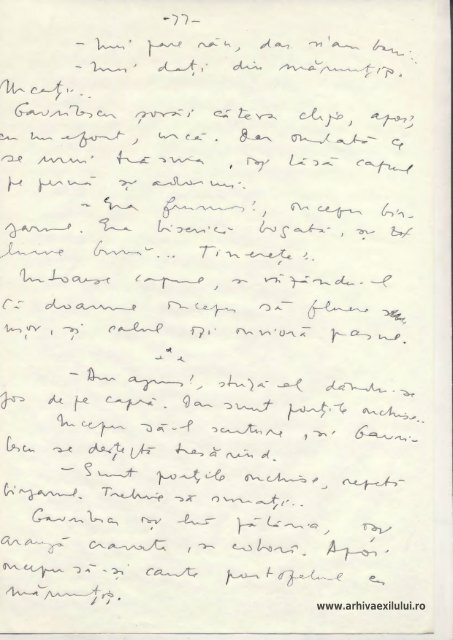 -77-
- Îmi pare rău, dar n'am bani...
- Îmi dați din mărunțiș.
Urcați...
Gavrilescu șovăi câteva clipe, apoi,
cu un efort, urcă. Dar îndată ce
se urni trăsura, își lăsă capul
pe pernă și adormi.
- Era frumos!, începu bir-
jarul. Era biserică bogată, și
lume bună... Tinerețe!.
Întoarse capul, și văzându-l
că doarme începu să fluiere
ușor, și calul își înmuie pasul.
***
- Am ajuns!, strigă el dându-se
jos de pe capră. Dar sunt porțile închise..
Începu să-l scuture, și Gavri-
lescu se deșteptă tresărind.
- Sunt porțile închise, repetă
birjarul. Trebuie să sunați...
Gavrilescu își luă pălăria, își
aranjă cravata, și coborî. Apoi
începu să-și caute portofelul cu
mărunțiș.
www.arhivaexilului.ro